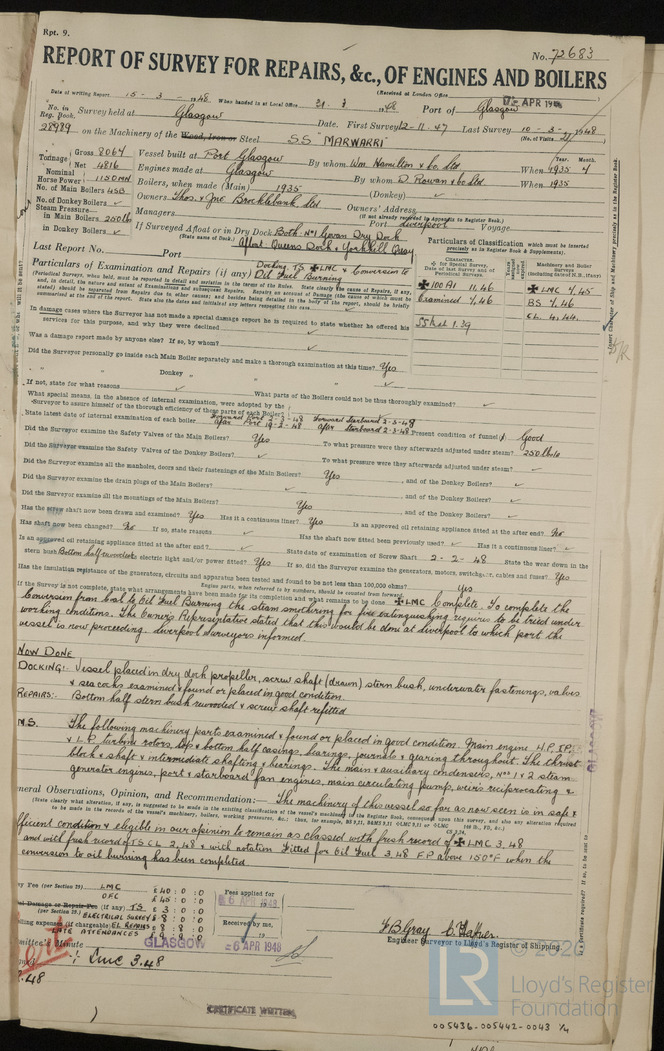 Rpt. 9.
No. 72683
REPORT OF SURVEY FOR REPAIRS, &c., OF ENGINES AND BOILERS
(Received at London Office
Date of writing Report 15 - 3 - 1948 When handed in at Local Office Port of Glasgow
APR 194
No. in Reg. Book. Survey held at Glasgow Date. First Survey 12-11-47 Last Survey 10-3-1948
(No. of Visits 27)
28989 on the Machinery of the Wood, Iron or Steel S.S "MARWARRI"
Tonnage Gross 8064 Net 4816
Vessel built at Port Glasgow By whom Wm. Hamilton & Co. Ltd When 1935 4
Year. Month.
Engines made at Glasgow By whom D. Rowan & Co. Ltd When 1935
Nominal Horse Power 1150 MN
Boilers, when made (Main) 1935 (Donkey)
No. of Main Boilers 4SB
Owners Thos. & Jno Brocklebank, Ltd Owners' Address
(If not already recorded in Appendix to Register Book.)
No. of Donkey Boilers
Managers Port Liverpool Voyage
Steam Pressure in Main Boilers 250 lb
If Surveyed Afloat or in Dry Dock Both. No 1 Govan Dry Dock
(State name of Dock.)
in Donkey Boilers
Afloat Queens Dock & Yorkhill Quay
Last Report No. Port
Particulars of Classification (which must be inserted precisely as in Register Book & Supplement).
Particulars of Examination and Repairs (if any) Docking, TS LMC & Conversion to Oil Fuel Burning
CHARACTER. for Special Survey, Date of last Survey and of Periodical Survey.
Machinery and Boiler Surveys (including date of N.B., if any)
100 A1 11.46
Examined 4.46
SS No 1.39
LMC 4.45
BS 4.46
CL 4.44
In damage cases where the Surveyor has not made a special damage report he is required to state whether he offered his services for this purpose, and why they were declined
Was a damage report made by anyone else? If so, by whom?
Did the Surveyor personally go inside each Main Boiler separately and make a thorough examination at this time? Yes
" " Donkey " " "
If not, state for what reasons What parts of the Boilers could not be thus thoroughly examined?
What special means, in the absence of internal examination, were adopted by the Surveyor to assure himself of the thorough efficiency of those parts of each Boiler?
State latest date of internal examination of each boiler Forward Port 2-3-48 Forward Starboard 2-3-48
After Port 19-2-48 After Starboard 2-3-48 Present condition of funnel Good
Did the Surveyor examine the Safety Valves of the Main Boilers? Yes To what pressure were they afterwards adjusted under steam? 250 lbs
Did the Surveyor examine the Safety Valves of the Donkey Boilers? To what pressure were they afterwards adjusted under steam?
Did the Surveyor examine all the manholes, doors and their fastenings of the Main Boilers? Yes, and of the Donkey Boilers?
Did the Surveyor examine the drain plugs of the Main Boilers?, and of the Donkey Boilers?
Did the Surveyor examine all the mountings of the Main Boilers? Yes, and of the Donkey Boilers?
Has the screw shaft now been drawn and examined? Yes Has it a continuous liner? Yes Is an approved oil retaining appliance fitted at the after end? No
Has shaft now been changed? No If so, state reasons Has the shaft now fitted been previously used? Has it a continuous liner?
Is an approved oil retaining appliance fitted at the after end? State date of examination of Screw Shaft 2-2-48 State the wear down in the
stern bush Bottom half rewooded electric light and/or power fitted? Yes If so, did the Surveyor examine the generators, motors, switchgear, cables and fuses? Yes
Has the insulation resistance of the generators, circuits and apparatus been tested and found to be not less than 100,000 ohms? Yes
If the Survey is not complete, state what arrangements have been made for its completion and what remains to be done LMC Complete. To complete the
Conversion from Coal to Oil Fuel Burning the steam smothering for fire extinguishing requires to be tried under
working conditions. The Owners Representative stated that this would be done at Liverpool to which port the
vessel is now proceeding. Liverpool Surveyors informed.
NOW DONE
DOCKING:- Vessel placed in dry dock propeller, screw shaft (drawn) stern bush, underwater fastenings, valves
& sea cocks examined & found or placed in good condition.
REPAIRS:- Bottom half stern bush rewooded & screw shaft refitted
M.S. The following machinery parts examined & found or placed in good condition. Main engine H.P, I.P,
& L.P. turbine rotors, top & bottom half casings, bearings, journals & gearing throughout. The thrust
block & shaft & intermediate shafting & bearings. The main & auxiliary condensers, Nos 1 & 2 steam
generator engines, port & starboard fan engines, main circulating pump, weirs reciprocating &
GLASGOW
General Observations, Opinion, and Recommendation:— The machinery of this vessel so far as now seen is in safe &
efficient condition & eligible in our opinion to remain as classed with fresh record of LMC 3.48
and with fresh record of TS CL 2,48 & with notation Fitted for Oil Fuel 3.48 F.P. above 150°F when the
conversion to oil burning has been completed.
Survey Fee (per Section 29.) LMC £40 : 0 : 0
OFC £45 : 0 : 0
Special Damage or Repair Fee (if any) TS £3 : 0 : 0
(per Section 29.)
ELECTRICAL SURVEY £8 : 0 : 0
Travelling expenses (if chargeable) EL REPAIRS
LATE ATTENDANCES
Fees applied for
6 APR 1948
Received by me,
19
F B Gray
Engineer Surveyor to Lloyd's Register of Shipping.
Committee's Minute GLASGOW 6 APR 1948
+ LMC 3.48
CERTIFICATE WRITTEN
© 2020
LR
Lloyd's Register
Foundation
005436-005442-0043 1/4